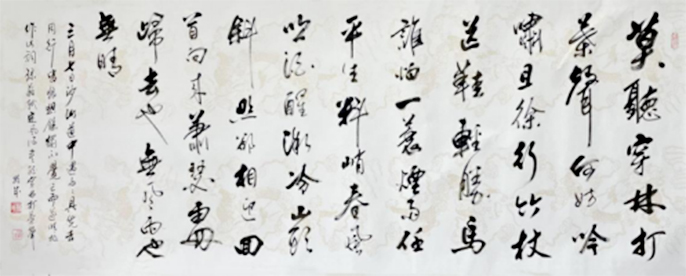 莫聽穿林打
葉聲何妨吟
嘯且徐行竹杖
芒鞋輕勝馬
誰怕一蓑煙雨任
平生料峭春風
吹酒醒微冷山頭
斜照卻相迎回
首向來蕭瑟處
歸去也無風雨也
無晴
三月七日沙湖道中遇雨雨具先去
同行皆狼狽余不覺已而遂晴故
作此詞